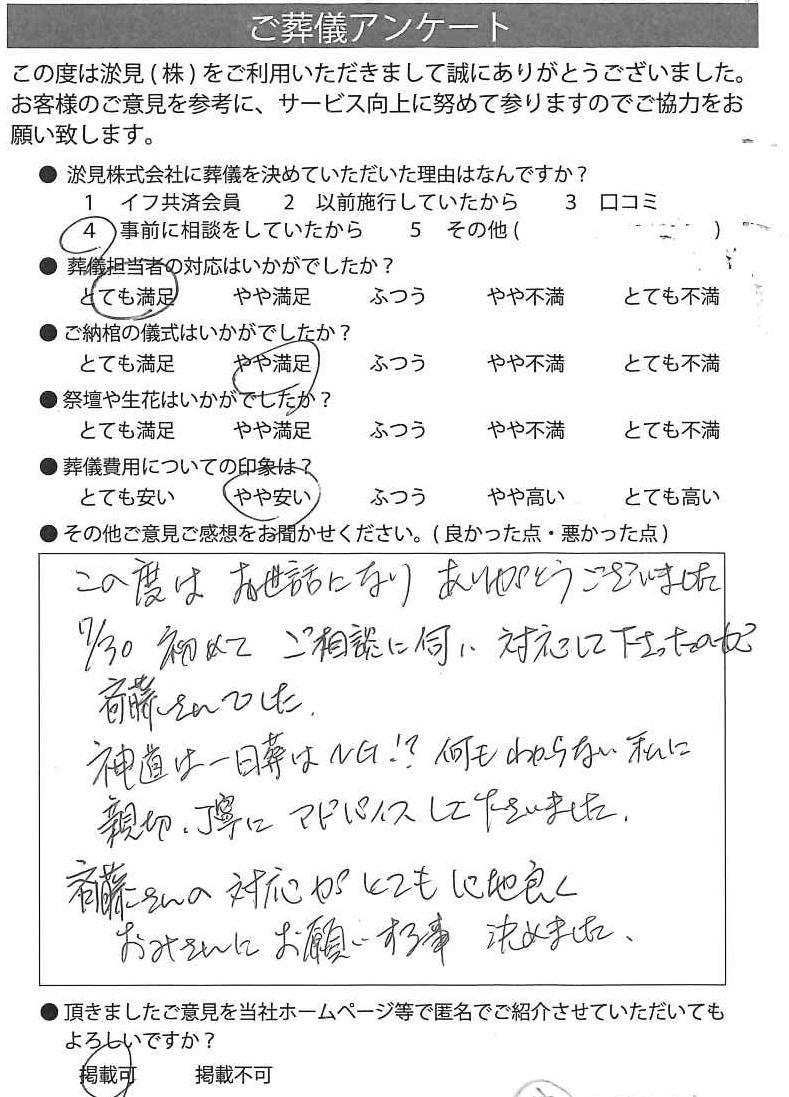 ご葬儀アンケート
この度は淤見(株)をご利用いただきまして誠にありがとうございました。
お客様のご意見を参考に、サービス向上に努めて参りますのでご協力をお
願い致します。
● 淤見株式会社に葬儀を決めていただいた理由はなんですか?
1 イフ共済会員 2 以前施行していたから 3 口コミ
4 事前に相談をしていたから 5 その他( )
● 葬儀担当者の対応はいかがでしたか?
とても満足 やや満足 ふつう やや不満 とても不満
● ご納棺の儀式はいかがでしたか?
とても満足 やや満足 ふつう やや不満 とても不満
● 祭壇や生花はいかがでしたか?
とても満足 やや満足 ふつう やや不満 とても不満
● 葬儀費用についての印象は?
とても安い やや安い ふつう やや高い とても高い
● その他ご意見ご感想をお聞かせください。(良かった点・悪かった点)
この度は お世話になり ありがとうございました
7/30 初めて ご相談に伺い 対応して下さったのが
斉藤さんでした.
神道は一日葬はNG!? 何もわからない私に
親切、丁寧に アドバイスして下さいました.
斉藤さんの 対応が とても心地良く
おみさんに お願いする事 決めました、
● 頂きましたご意見を当社ホームページ等で匿名でご紹介させていただいても
よろしいですか?
掲載可 掲載不可